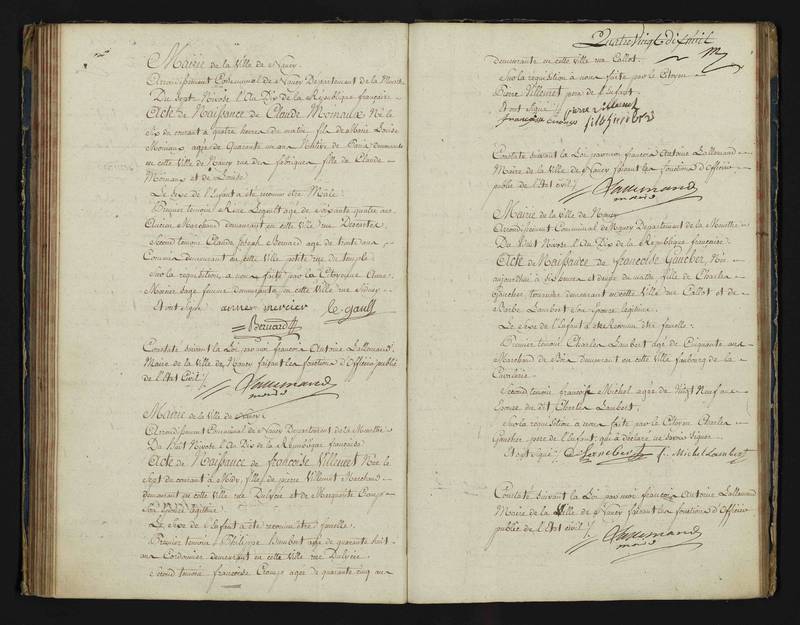 Mairie de la Ville de Nancy
Arrondissement Communal de Nancy Departement de la Meurthe
Du Sept Nivose l'An Dix de la République française
Acte de Naissance de Claude Né le
Six du courant à quatre heures du matin, fils de Marie Louise
agée de Quarante un an Native de Paris demeurante
en cette Ville de Nancy rue des fabriques, fille de Claude
et de Louise
Le Sexe de l'Enfant a été reconnu être Mâle.
Premier temoin, Legault agé de soixante quatre ans
Marchand demeurant en cette Ville rue Descartes
Second temoin, Claude Joseph Bernard agé de trente deux
Commis demeurant en cette Ville petite rue du temple
Sur la requisition, a nous faite par la Citoyenne Anne
Mercier Sage femme demeurante en cette Ville rue
Et ont signé anne mercier le gault
Bernard
Constaté suivant la Loi par moi françois Antoine Lallemand
Maire de la Ville de Nancy faisant les fonctions d'Officier public
de l'Etat Civil
Lallemand
maire
Mairie de la Ville de Nancy
Arrondissement Communal de Nancy Departement de la Meurthe
Du Huit Nivose l'An Dix de la République française
Acte de Naissance de françoise Villemet Née le
Sept du courant à Midy, fille de pierre Villemet Marchand
demeurant en cette Ville rue et de Marguerite
Son Epouse legitime
Le Sexe de l'Enfant a été reconnu être femelle.
Premier temoin, Philippe Humbert agé de quarante huit
ans Cordonnier demeurant en cette Ville rue
Second temoin, françoise agée de quarante cinq ans
Quatre Vingt dix
demeurante en cette ville rue Callot.
Sur la requisition à nous faite par le Citoyen
Pierre Villemet pere de l'enfant.
Et ont signé pierre villemet
françoise
Constaté suivant la Loi par moi françois Antoine Lallemand
Maire de la Ville de Nancy faisant les fonctions d'Officier
public de l'Etat civil
Lallemand
maire
Mairie de la Ville de Nancy
Arrondissement Communal de Nancy Departement de la Meurthe
Du Huit Nivose l'An Dix de la République française.
Acte de Naissance de françoise Gaucher, Née
aujourdhui à six heures et demie du matin fille de Charles
Gaucher, demeurant en cette Ville rue Callot et de
Barbe Lambert Son Epouse legitime.
Le Sexe de l'Enfant a été Reconnu être femelle.
Premier temoin Charles Lambert agé de Cinquante ans
Marchand de demeurant en cette Ville faubourg de la
Second temoin françoise Michel agée de Vingt Neuf ans
Epouse du dit Charles Lambert,
Sur la requisition a nous faite par le Citoyen Charles
Gaucher pere de l'Enfant, qui a déclaré ne savoir signer
Et ont signé f. Michel Lambert
Constaté suivant la Loi par moi françois Antoine Lallemand
Maire de la Ville de Nancy faisant les fonctions d'Officier
public de l'Etat civil
Lallemand
maire